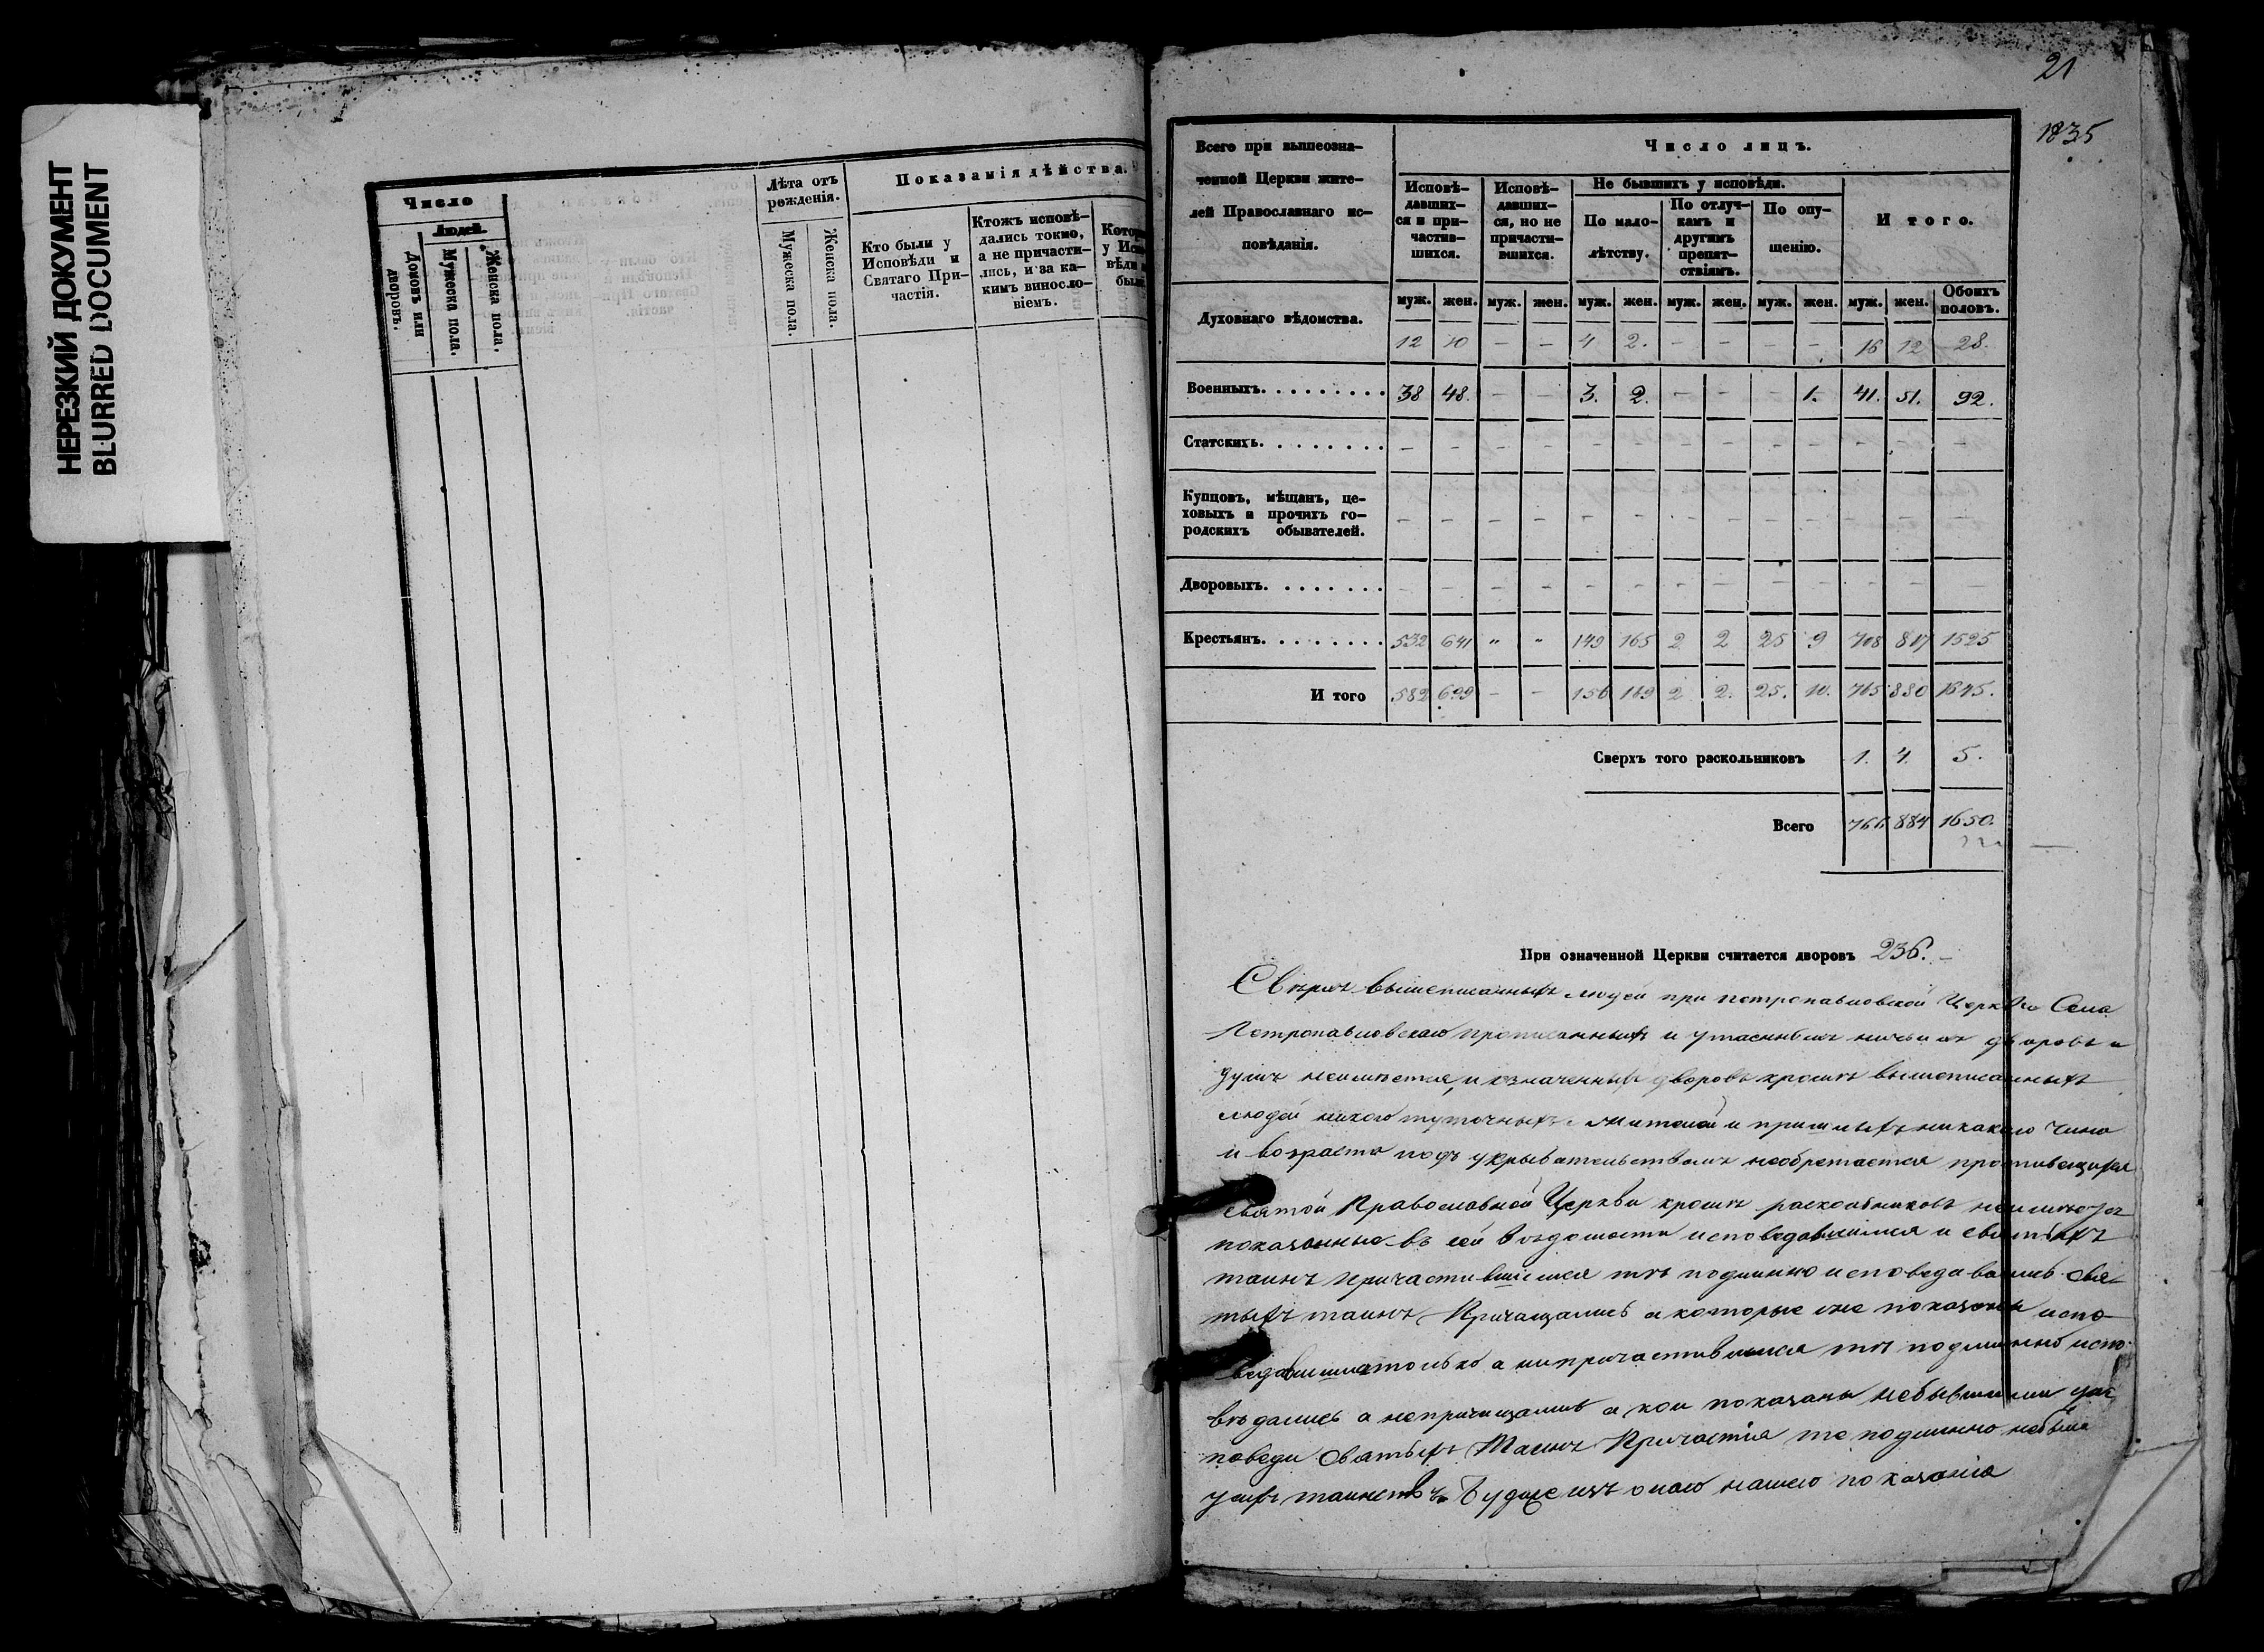 НЕРЕЗКИЙ ДОКУМЕНТ
BLURRED DOCUMENT
Число
Людей.
Домовъ или дворовъ.
Мужеска пола.
Женска пола.
Лѣта отъ рожденія.
Мужеска пола.
Женска пола.
Показанія дѣйства.
Кто были у Исповѣди и Святаго Причастія.
Ктожъ исповѣдались токмо, а не причастились, и за какимъ винословіемъ.
21
1835
Всего при вышеозначенной Церкви жителей Православнаго исповѣданія.
Число лицъ.
Исповѣдавшихся и причастившихся.
Исповѣдавшихся, но не причастившихся.
Не бывшихъ у исповѣди.
По малолѣтству.
По отлучкамъ и другимъ препятствіямъ.
По опущенію.
И того.
муж. жен. муж. жен. муж. жен. муж. жен. муж. жен. муж. жен. Обоихъ половъ.
Духовнаго вѣдомства. 12 10 – – 4 2. – – – – 16 12 28.
Военныхъ. 38 48. – – 3. 2. – – – 1. 41. 51. 92.
Статскихъ. – – – – – – – – – – – – –
Купцовъ, мѣщанъ, цеховыхъ и прочихъ городскихъ обывателей. – – – – – – – – – – – – –
Дворовыхъ. – – – – – – – – – – – – –
Крестьянъ. 532 641 „ „ 149 165 2 2 25 9 708 817 1525
И того 582 699 – – 156 169 2 2. 25. 10. 765 880 1645.
Сверхъ того раскольниковъ 1. 4. 5.
Всего 766 884 1650.
При означенной Церкви считается дворовъ 236.
Сверхъ вышеписанныхъ людей при петропавловской Церкви Села
Петропавловскаго прописанныхъ и утаенныхъ ничьихъ дворовъ и
душъ неимѣется, и означенныхъ дворовъ кромѣ вышеписанныхъ
людей никого туточныхъ жителей и пришлыхъ никакого чина
и возраста подъ укрывательствомъ необретается противящихся
святой Православной Церкви кромѣ раскольниковъ неимеются
показанные въ сей ведомости исповедавшимися и святыхъ
таинъ причастившимися тѣ подлинно исповедавались свя
тыхъ таинъ Причащались а которые же показаны испо
ведавшимися только а не причастившимися тѣ подлинно испо
вѣдались а непричищались а кои показаны небывшими уис
поведи Святыхъ Таинъ Причастія те подлинно небыли
таинствъ Будеже изъ онаго нашего показанія